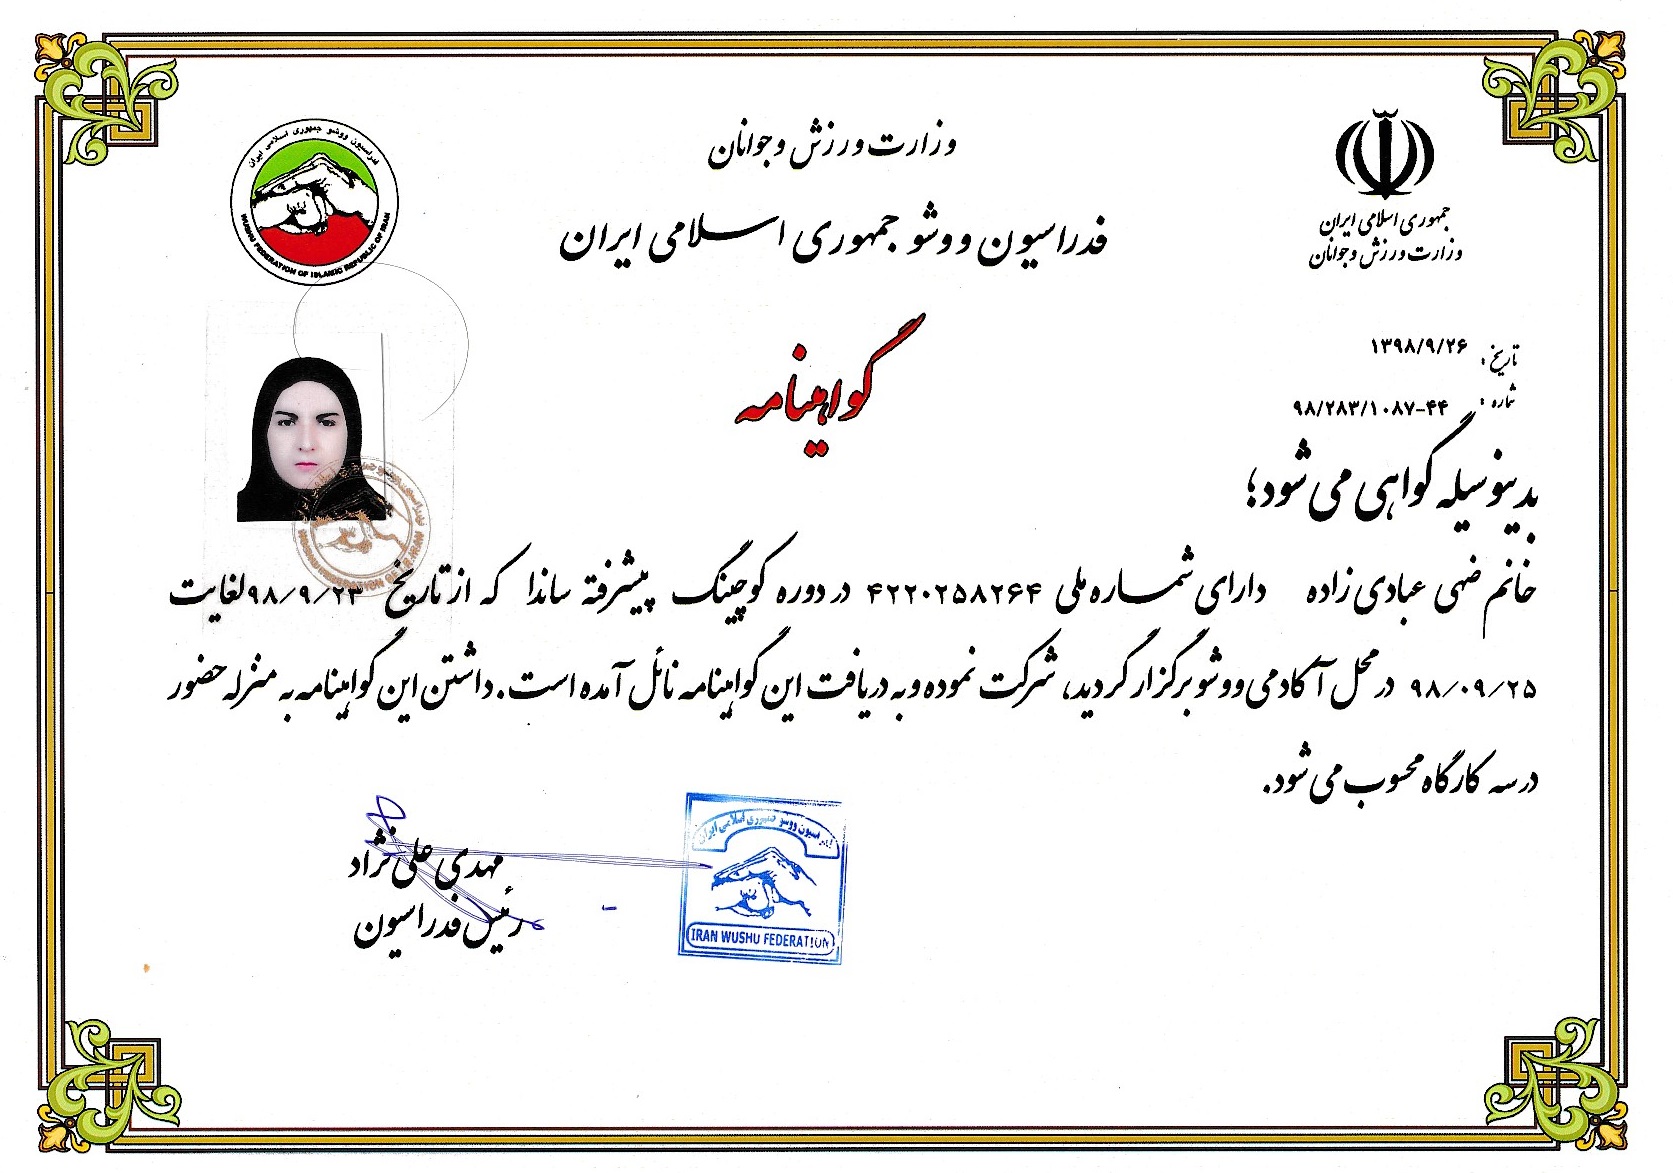 وزارت ورزش و جوانان
فدراسیون ووشو جمهوری اسلامی ایران
جمهوری اسلامی ایران
وزارت ورزش و جوانان
فدراسیون ووشو جمهوری اسلامی ایران
WUSHU FEDERATION OF ISLAMIC REPUBLIC OF IRAN
گواهینامه
تاریخ: ۱۳۹۸/۹/۲۶
شماره: ۹۸/۲۸۳/۱۰۸۷-۴۴
بدینوسیله گواهی می شود؛
خانم ضهی عبادی زاده دارای شماره ملی ۴۲۲۰۲۵۸۲۶۴ در دوره کوچینگ پیشرفته ساندا که از تاریخ ۹۸/۹/۲۳ لغایت
۹۸/۰۹/۲۵ در محل آکادمی ووشو برگزار گردید، شرکت نموده و به دریافت این گواهینامه نائل آمده است. داشتن این گواهینامه به منزله حضور
در سه کارگاه محسوب می شود.
مهدی علی نژاد
رئیس فدراسیون
فدراسیون ووشو جمهوری اسلامی ایران
IRAN WUSHU FEDERATION